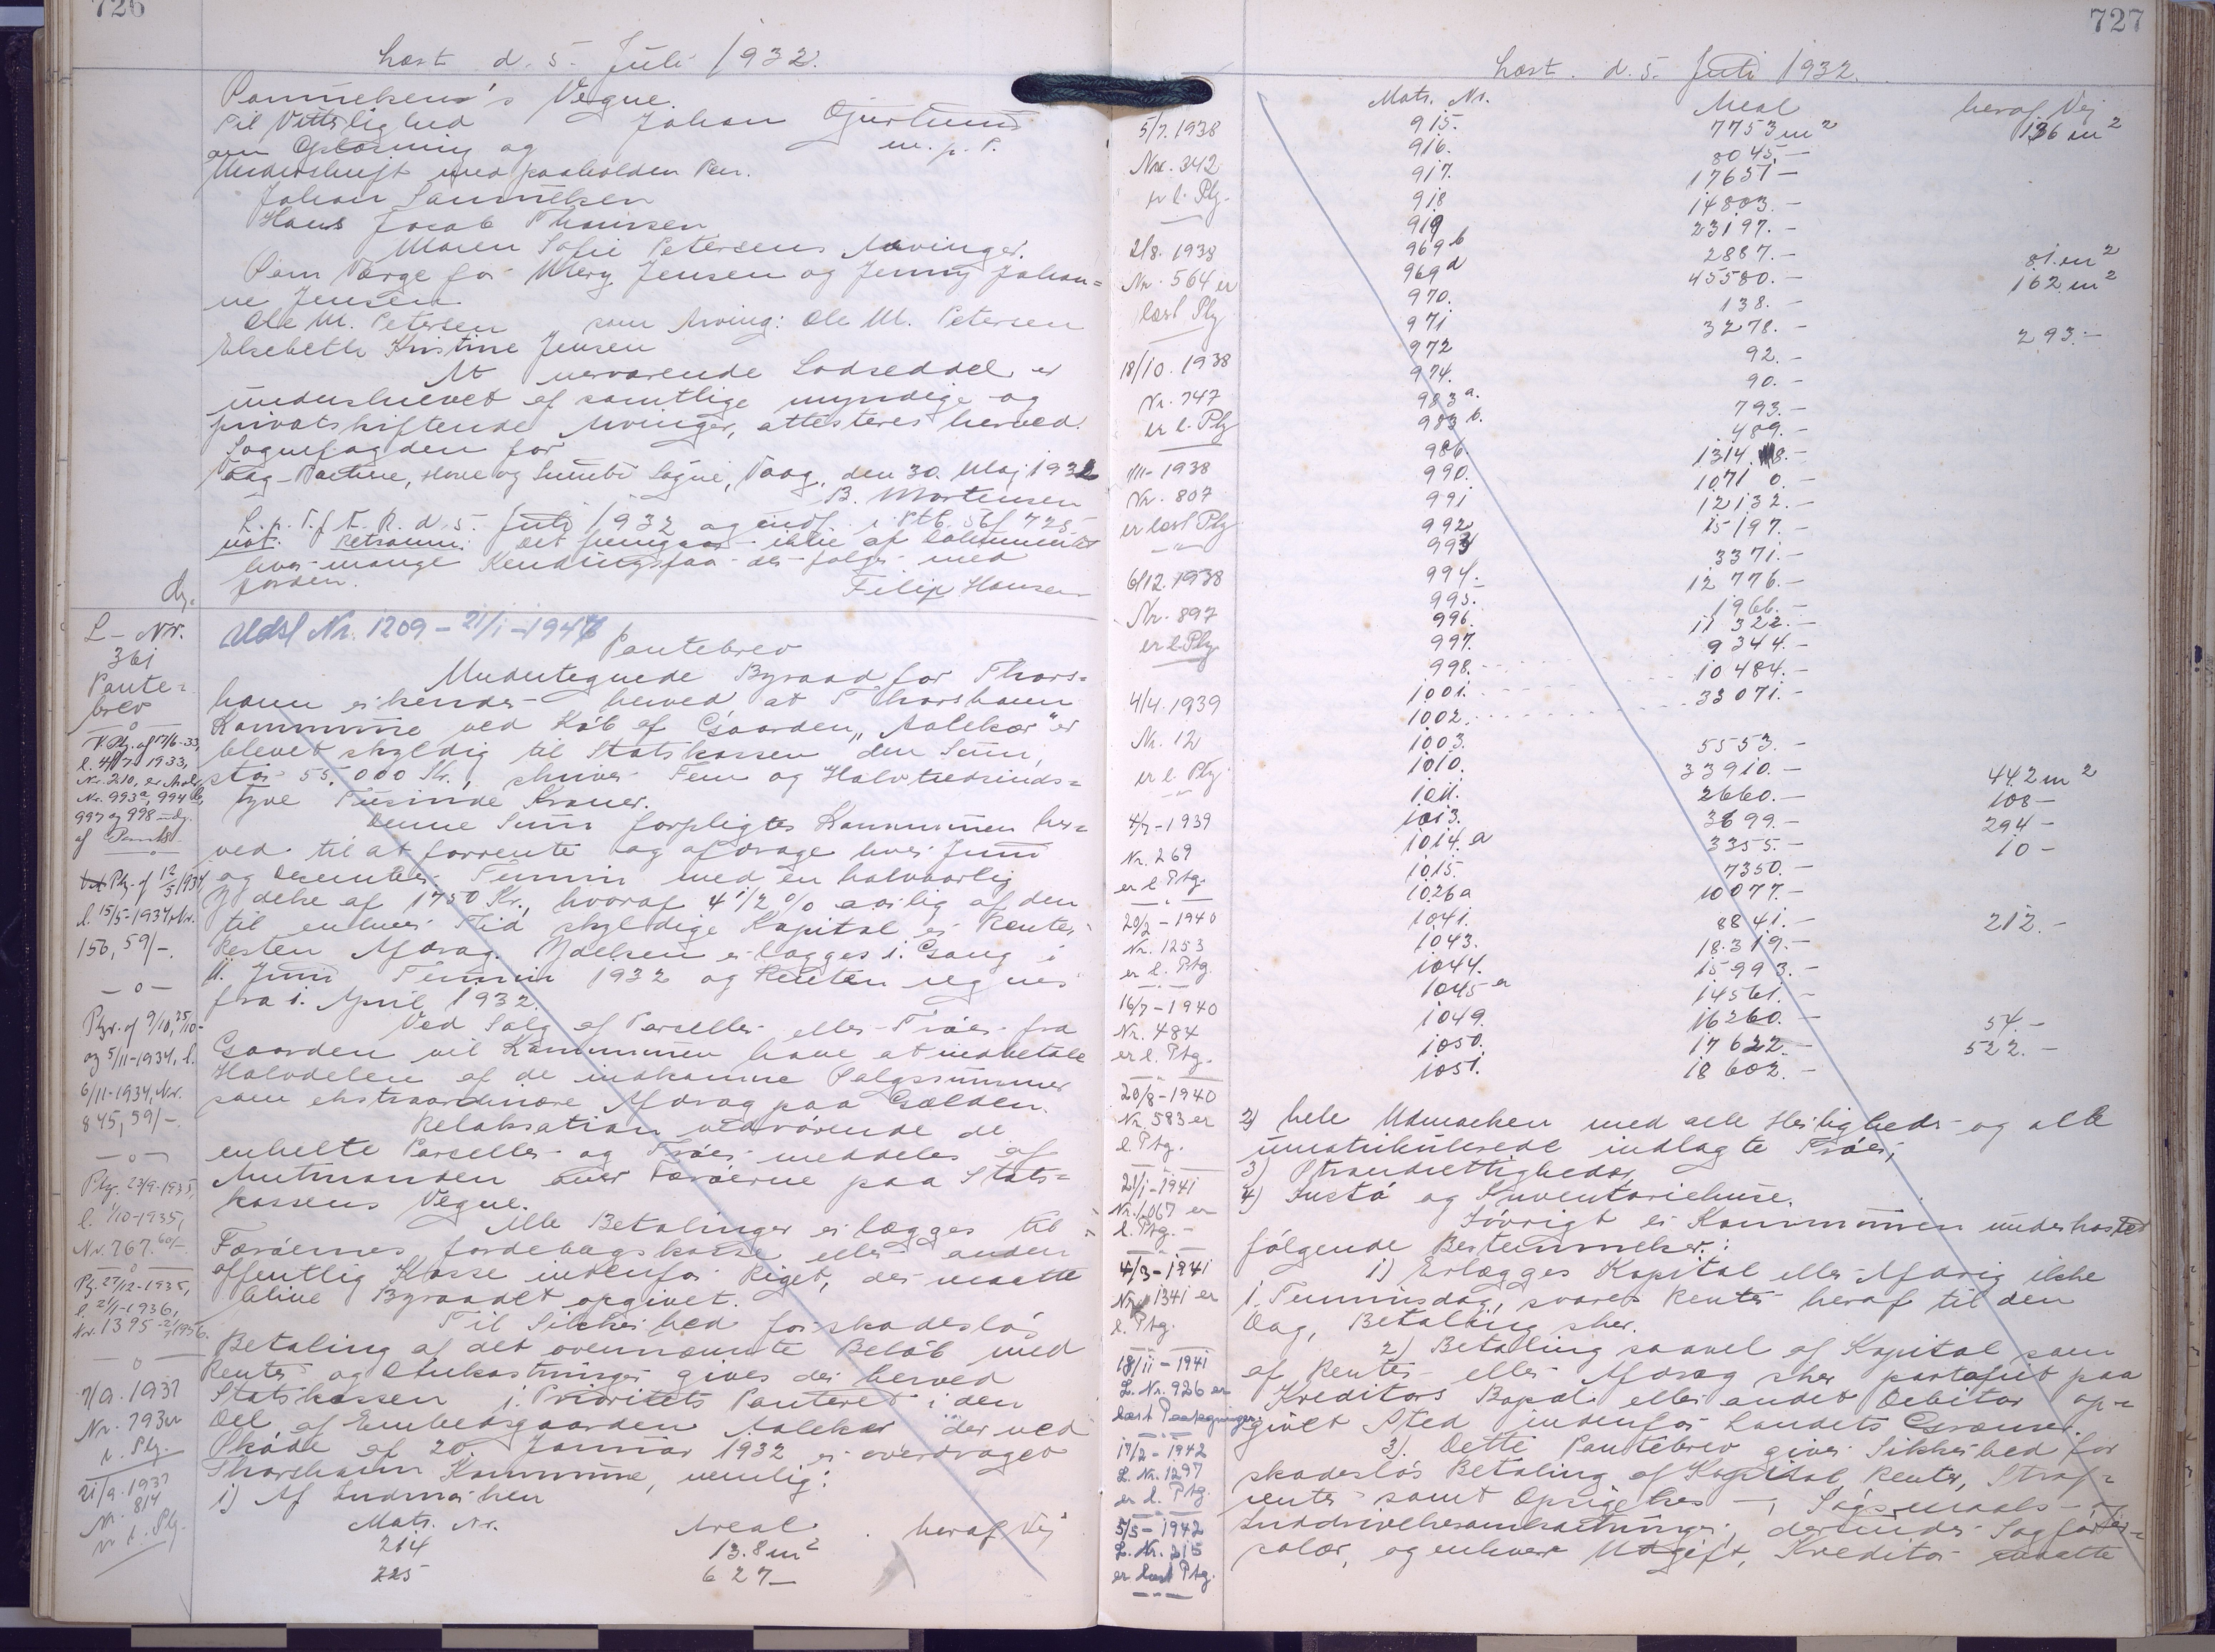 726
Læst d. 5. Juli 1932.
Vegne.
Til Vitterlighed Johan
om Oplæsning og m. p. P.
Underskrift med paaholden Pen.
Johan Samuelsen
Hans Jacob Thomsen
Maren Sofie Petersens Arvinger.
Som Værge for Mery Jensen og Jenny Johan=
ne Jensen
Ole M. Petersen som Arving: Ole M. Petersen
Elsebeth Kristine Jensen
At nærværende Lodseddel er
underskrevet af samtlige myndige og
privatskiftende Arvinger, attesteres herved.
Sognefogden for
Vaag-Porkere, Hove og Sumbø Sogne, Vaag, den 30. Maj 1932
B. Mortensen
L. p. T. f F. R. d. 5. Juli 1932 og indf. i Ptb. 56 f 725
not. Retsanm: Det fremgaar ikke af Dokumentet
hvor mange Kendingsfaar der følger med
Jorden.
Felix Hansen
L-Nr.
361
Pante=
brev
Udsl Nr. 1209 - 21/1-1947
Pantebrev
Undertegnede Byraad for Thors=
havn erkender herved, at Thorshavn
Kommune ved Køb af Gaarden "Aalekær" er
blevet skyldig til Statskassen den Sum,
stor 55,000 Kr., skriver Fem og Halvtredsinds=
tyve Tusinde Kroner.
Denne Sum forpligter Kommunen her=
ved til at forrente og afdrage hver Juni
og December Termin med en halvaarlig
Ydelse af 1750 Kr., hvoraf 4 1/2 % aarlig af den
til enhver Tid skyldige Kapital er Renter
Resten Afdrag. Ydelsen erlægges i. Gang i
11. Juni Termin 1932 og Renten regnes
fra 1. April 1932.
Ved Salg af Parceller eller Trøer fra
Gaarden vil Kommunen have at indbetale
Halvdelen af de indkomne Salgssummer
som ekstraordinære Afdrag paa Gælden.
Relaksation vedrørende de
enkelte Parceller og Trøer meddeles af
Amtmanden over Færøerne paa Stats=
kassens Vegne.
Alle Betalinger erlægges til
Færøernes Jordebogskasse eller anden
offentlig Kasse indenfor Riget, der maatte
blive Byraadet opgivet.
Til Sikkerhed for skadesløs
Betaling af det ovennævnte Beløb med
Renter og Omkostninger gives der herved
Statskassen 1. Prioritets Panteret i den
Del af Embedsgaarden Aalekær der ved
Skøde af 20. Januar 1932 er overdraget
Thorshavn Kommune, nemlig:
1) Af Indmarken
Matr. Nr. Areal heraf Vej
214 13.8 m2
225 627 —
V. Ptg. af 17/6-33,
l. 4/7 1933,
Nr. 210, er Matr.
Nr. 993a, 994b,
997 og 998
af Pantet
Ptg. af 12/5 1934
l. 15/5-1934, Nr.
156, 59/-.
—o—
Ptgr. af 9/10, 25/10-
og 5/11-1934, l.
6/11-1934, Nr.
845, 59/-.
—o—
Ptg. 23/9-1935,
l. 1/10-1935,
Nr. 767. 60/-.
—o—
Ptg. 27/12-1935,
l. 21/1-1936,
Nr. 1395
—o—
7/9. 1937
Nr. 793 er
l. Ptg.
21/9. 1937
Nr. 814
er l. Ptg.
727
Læst. d. 5. Juli 1932.
5/7. 1938
Nr. 342
er l. Ptg.
2/8. 1938
Nr. 564 er
læst Ptg
18/10. 1938
Nr. 747
er l. Ptg
1/11-1938
Nr. 807
er læst Ptg
6/12. 1938
Nr. 897
er l. Ptg
4/4. 1939
Nr. 12
er l. Ptg
4/7-1939
Nr. 269
er l Ptg.
20/2-1940
Nr. 1253
er l. Ptg.
16/7-1940
Nr. 484
er l. Ptg.
20/8-1940
Nr. 583 er
l. Ptg.
21/1-1941
Nr. 1067 er
l. Ptg.
4/3-1941
Nr. 1341 er
l. Ptg.
18/11-1941
L. Nr. 926 er
læst Paategninger.
17/2-1942
L. Nr. 1297
er l. Ptg.
5/5-1942
L. Nr. 215
er læst Ptg.
Matr. Nr. Areal heraf Vej
915. 7753 m2 136 m2
916. 8045.—
917. 17651—
918 14803.—
919 23197.—
969b 2887.— 81. m2
969d 45580.— 162. m2
970. 138.—
971 3278.— 293.—
972 92.—
974. 90.—
983a. 793.—
983b. 489.—
986. 1314 8.—
990. 1071 0.—
991 12132.—
992 15197.—
993 3371.—
994. 12776.—
995. 1966.—
996. 11322.—
997. 9344.—
998. 10484.—
1001. 33071.—
1002.
1003. 5553.—
1010. 33910.— 442 m2
1011. 2660.— 108—
1013. 3699.— 294—
1014.a 3355.— 10—
1015. 7350.—
1026a 10077.—
1041. 8841.— 212.—
1043. 18.319.—
1044. 15993.—
1045a 14561.—
1049. 16260.— 54.—
1050. 17622.— 522.—
1051. 18602.—
2) hele Udmarken med alle Herligheder og alle
umatrikulerede indlagte Trøer,
3) Strandrettigheder,
4) Inste og Inventariehuse.
Iøvrigt er Kommunen underkastet
følgende Bestemmelser:
1) Erlægges Kapital eller Afdrag ikke
1. Terminsdag, svares Renter heraf til den
Dag, Betaling sker.
2) Betaling saavel af Kapital som
af Renter eller Afdrag sker portofrit paa
Kreditors Bopæl eller andet Debitor op=
givet Sted indenfor Landets Grænser.
3). Dette Pantebrev giver Sikkerhed for
skadesløs Betaling af Kapital, Renter, Straf=
renter samt Opsigelses —, Søgsmaals- og
Inddrivelsesomkostninger, derunder Sagfører=
salær, og enhver Udgift, Kreditor maatte